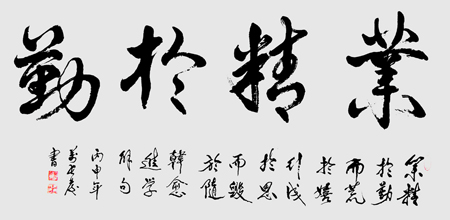 業精於勤
業精
於勤
而荒
於嬉
行成
於思
而毀
於隨
韓愈
進學
解句
丙申年
書